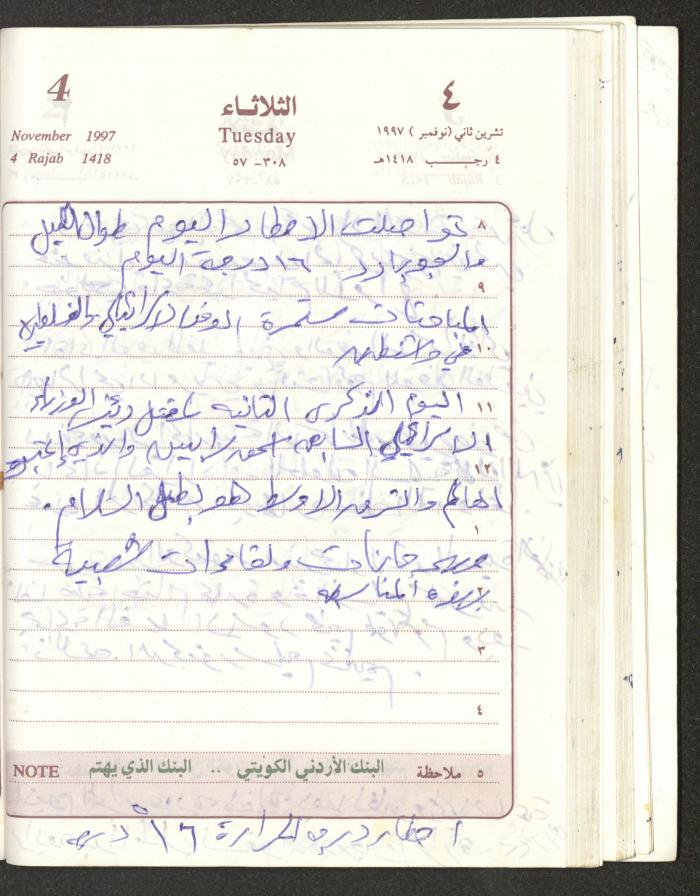 4
الثلاثاء
٤
November 1997
Tuesday
تشرين ثاني (نوفمبر) ١٩٩٧
4 Rajab 1418
٣٠٨-٥٧
٤ رجب ١٤١٨هـ
٨ تواصلت الامطار اليوم طوال الليل
والجو بارد ١٦ درجة اليوم
٩
المباحثات مستمرة الوفد الاسرائيلي والفلسطيني
١٠ في واشنطن
١١ اليوم الذكرى الثانية لمقتل رئيس الوزراء
الاسرائيلي السابق اسحق رابين والذي إعتبره
١٢
العالم والشرق الاوسط هو بطل السلام.
١
ولقاءات شعبية
٢ بهذه المناسبه
٣
٤
NOTE
البنك الأردني الكويتي .. البنك الذي يهتم
ملاحظة ٥
امطار درجة الحرارة ١٦ درجه